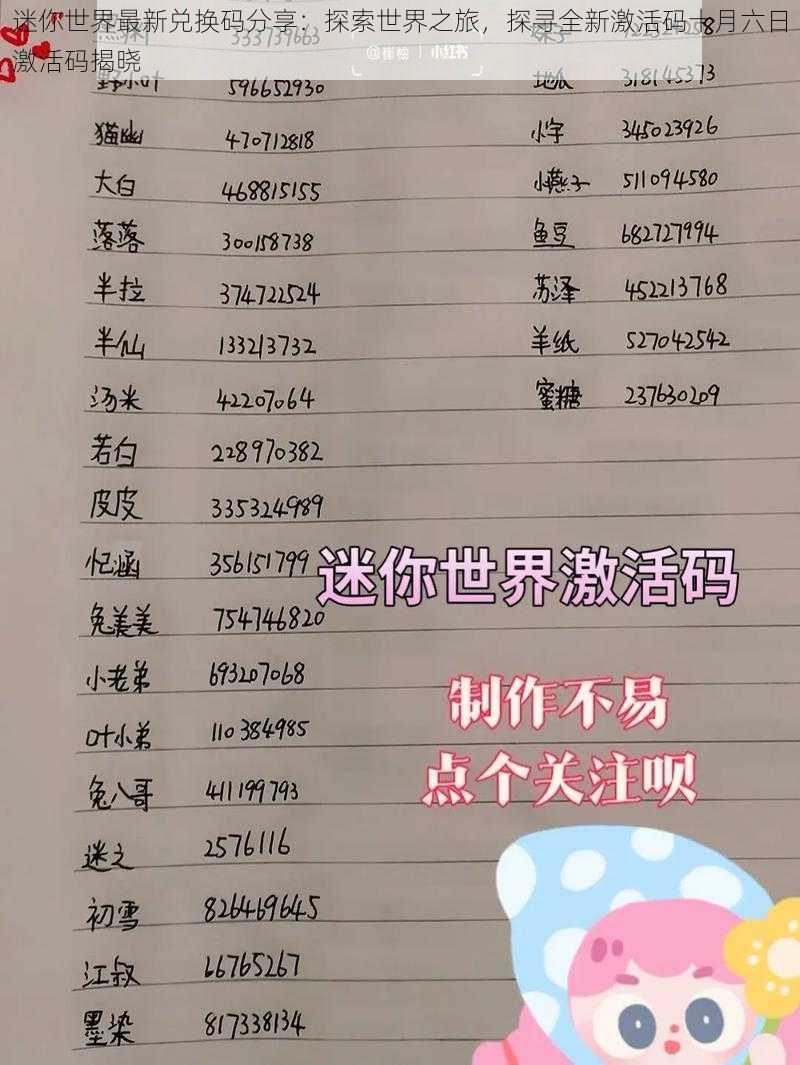 迷你世界最新兑换码分享：探索世界之旅，探寻全新激活码十月六日
激活码揭晓
@崔柚 | 小红书
野小叶 596652930
地瓜 318145373
猫幽 470712818
小字 345023926
大白 468815155
小燕子 511094580
落落 300158738
鱼豆 682727994
半拉 374722524
苏泽 452213768
半仙 133213732
羊纸 527042542
汤米 42207064
蜜糖 237630209
若白 228970382
皮皮 335324989
忆涵 356151799
迷你世界激活码
兔美美 754746820
小老弟 693207068
制作不易
叶小弟 110384985
点个关注呗
兔八哥 411199793
迷之 2576116
初雪 826469645
江叔 66765267
墨染 817338134